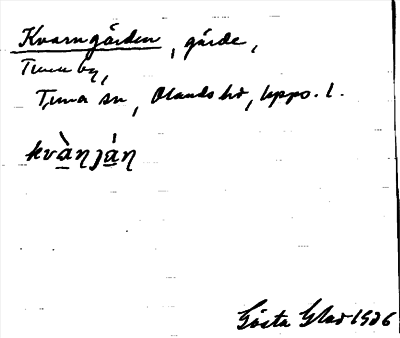 Kvarngården, gärde,
Tuna by,
Tuna sn, Olands hd, Upps. l.
kvὰɳjáɳ
Gösta Glad 1936